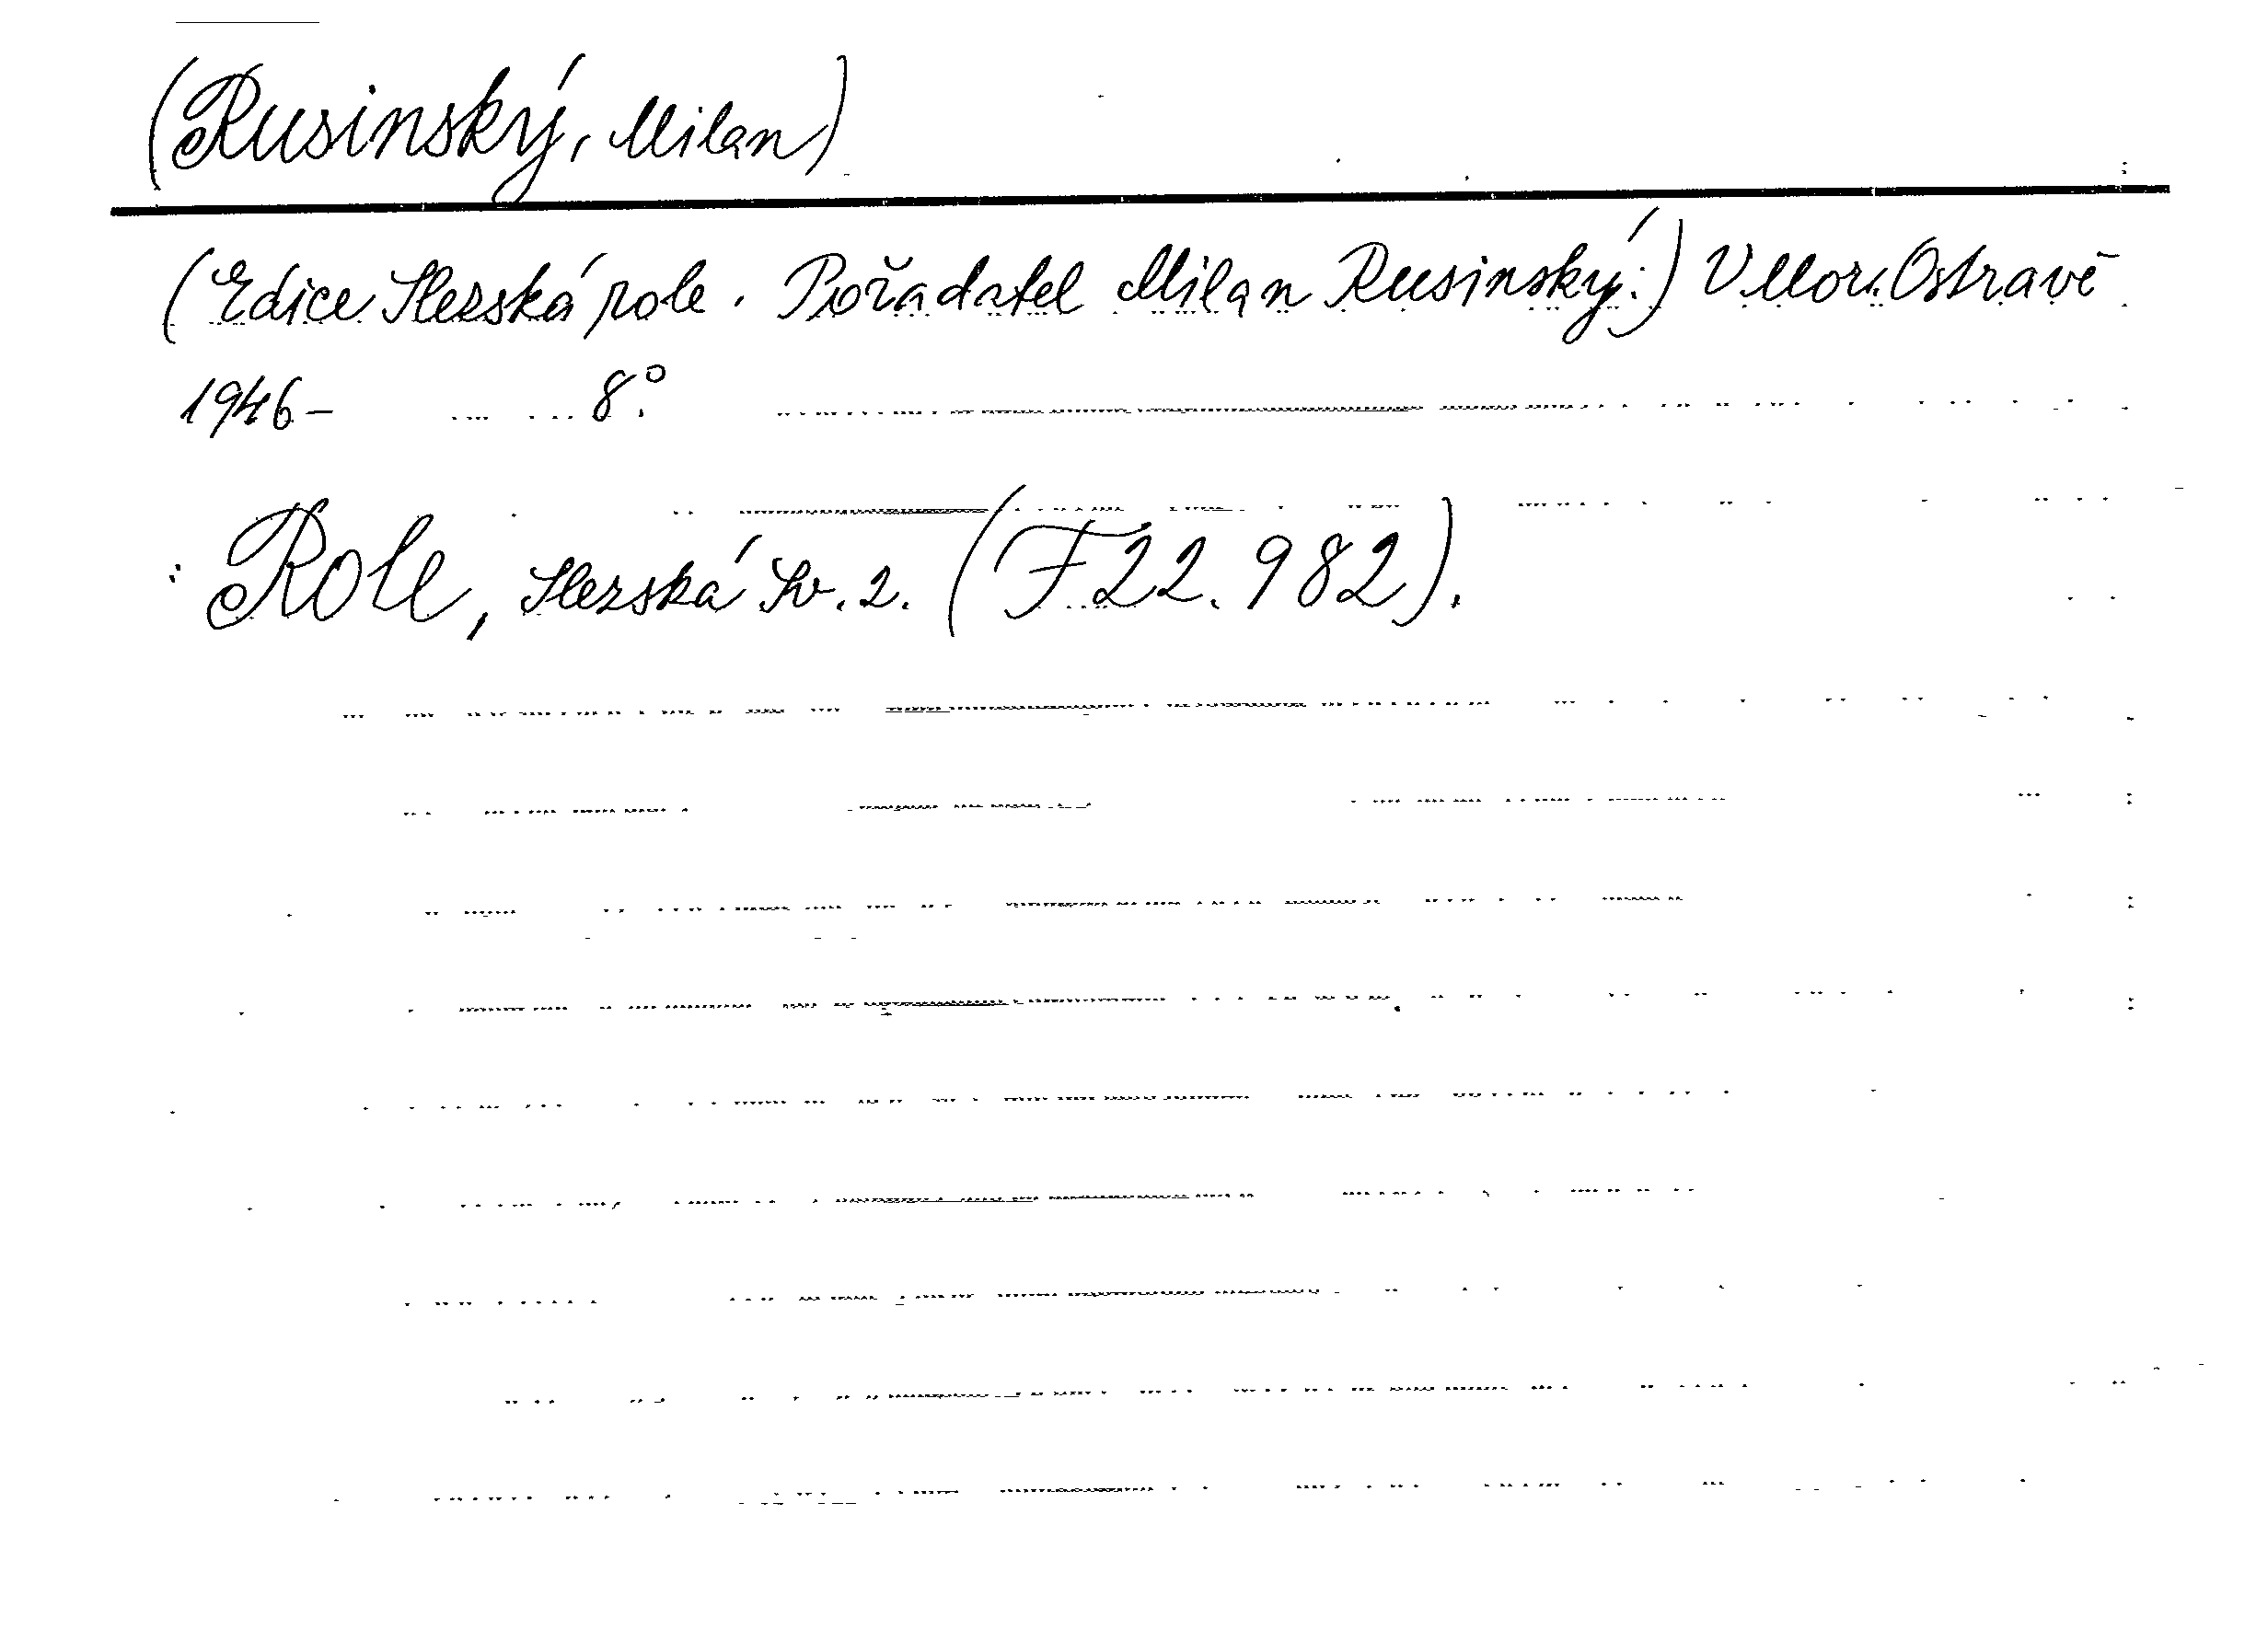 (Rusinský, Milan)
(Edice Slezská role. Pořadatel Milan Rusinský:) V Mor. Ostravě
1946- 8°.
: Role, Slezská Sv. 2. (F 22.982).